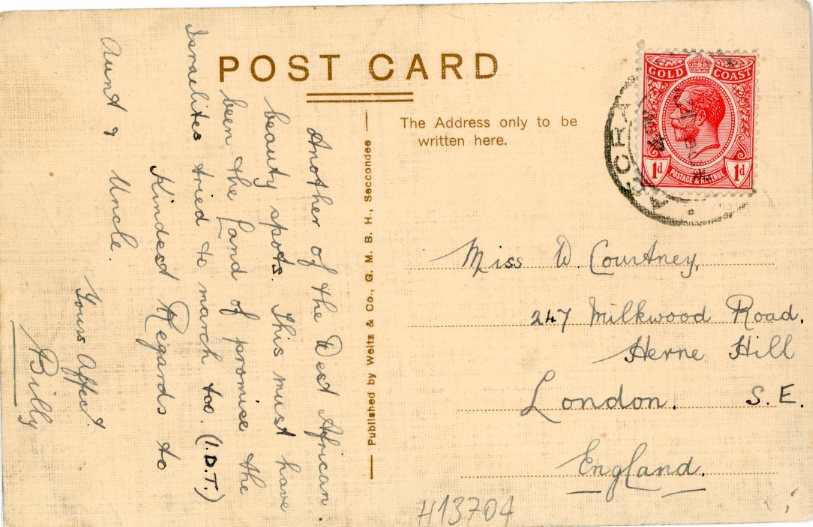 POST CARD
Another of the West African
beauty spots. This must have
been the Land of promise the
Israelites tried to march too. (I.D.T.)
Kindest Regards to
Aunt & Uncle.
Yours Affect
Billy
Published by Weits & Co., G. M. B. H., Seccondee
The Address only to be
written here.
GOLD COAST
1d POSTAGE & REVENUE 1d
ACCRA
Miss W. Courtney,
247 Milkwood Road.
Herne Hill
London. S.E.
England.
H13704